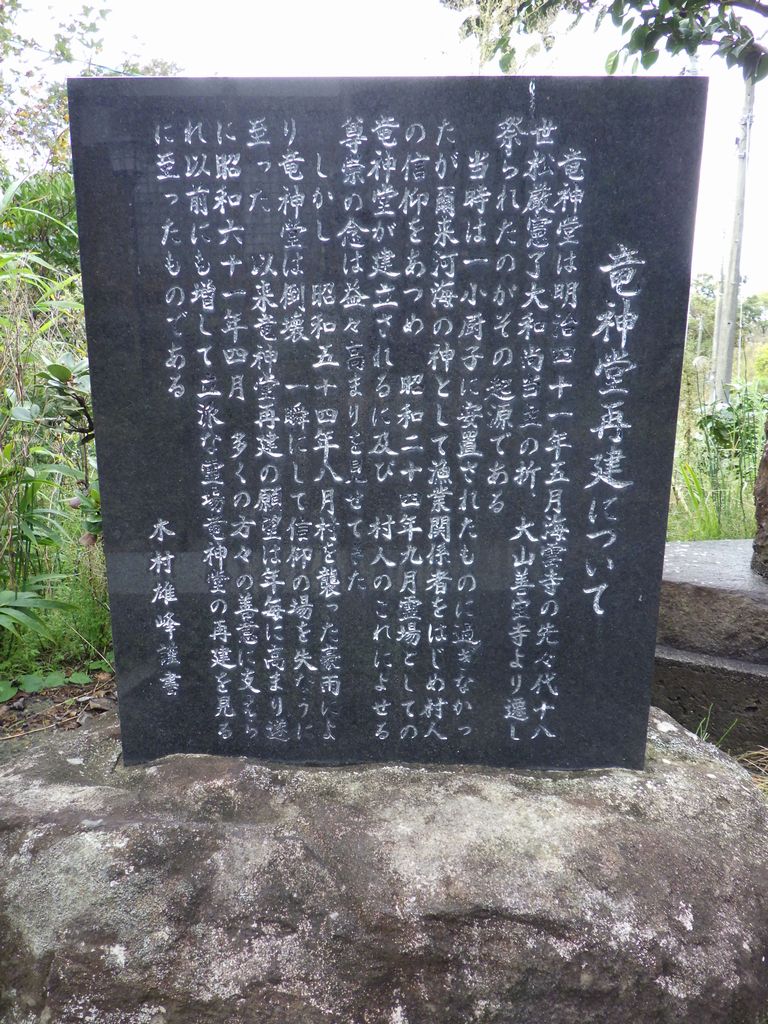 竜神堂再建について
竜神堂は明治四十一年五月海雲寺の先々代十八
世松巌憲了大和尚当主の折、大山善宝寺より遷し
祭られたのがその起源である
当時は一小厨子に安置されたものに過ぎなかっ
たが爾来河海の神として漁業関係者をはじめ村人
の信仰をあつめ 昭和二十四年九月霊場としての
竜神堂が建立されるに及び 村人のこれによせる
尊崇の念は益々高まりを見せてきた
しかし 昭和五十四年八月村を襲った豪雨によ
り竜神堂は倒壊 一瞬にして信仰の場を失なうに
至った 以来竜神堂再建の願望は年毎に高まり遂
に昭和六十一年四月 多くの方々の善意に支えら
れ以前にも増して立派な霊場竜神堂の再建を見る
に至ったものである
木村雄峰謹書